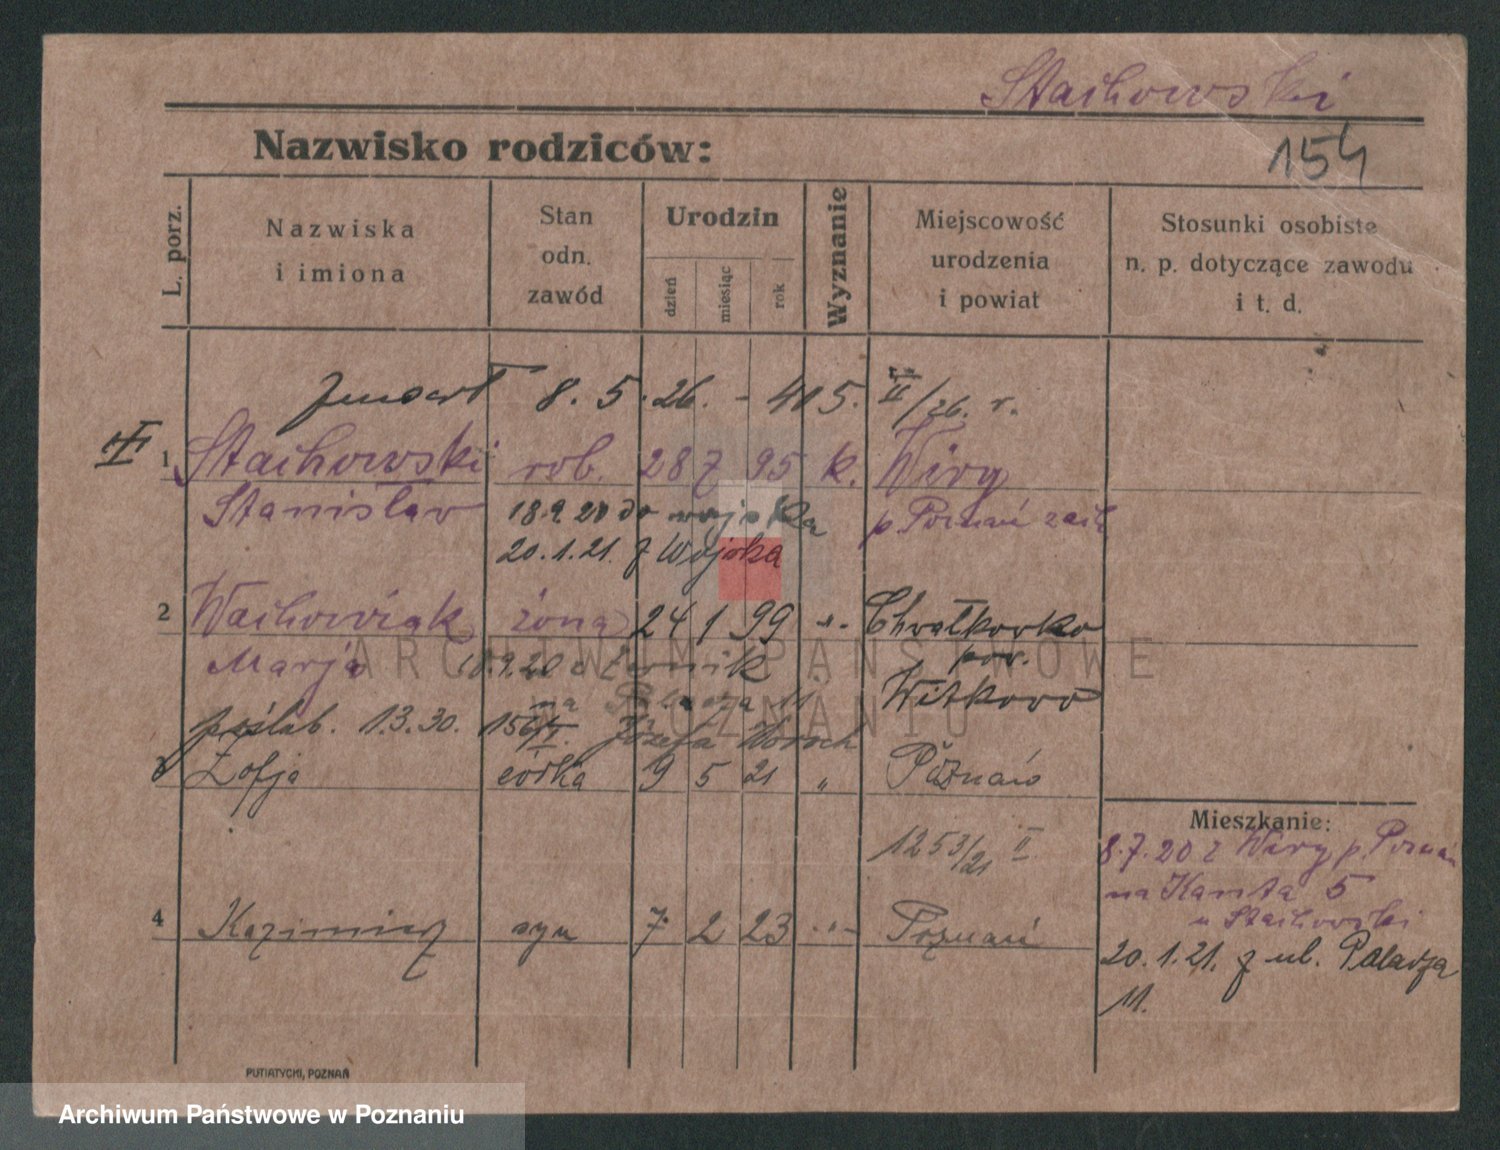 Stachowski
Nazwisko rodziców:
154
L. porz.
Nazwiska
i imiona
Stan
odn.
zawód
Urodzin
dzień
miesiąc
rok
Wyznanie
Miejscowość
urodzenia
i powiat
Stosunki osobiste
n. p. dotyczące zawodu
i t. d.
zmarł 8. 5. 26. - 415. II/26. r.
1 Stachowski rob. 28 7 95 k. Wiry
Stanisław 18.9.20 do wojska p. Poznań zach
20.1.21. z Wojska
2 Wachowiak żona 24 1 99 -"- Chwałkowko
Marja 18.9.20 pow.
na Palacza 11. Witkowo
poślub. 1.3.30. 156/II. Józefa
Zofja córka 9 5 21 " Poznań
Mieszkanie:
1253/21 II
8.7.20 z Wiry p. Poznań
na Kanta 5
u Stachowski
4 Kazimierz syn 7 2 23 -"- Poznań
20.1.21. z ul. Palacza
11.
PUTIATYCKI, POZNAŃ
ARCHIWUM PAŃSTWOWE
W POZNANIU
Archiwum Państwowe w Poznaniu